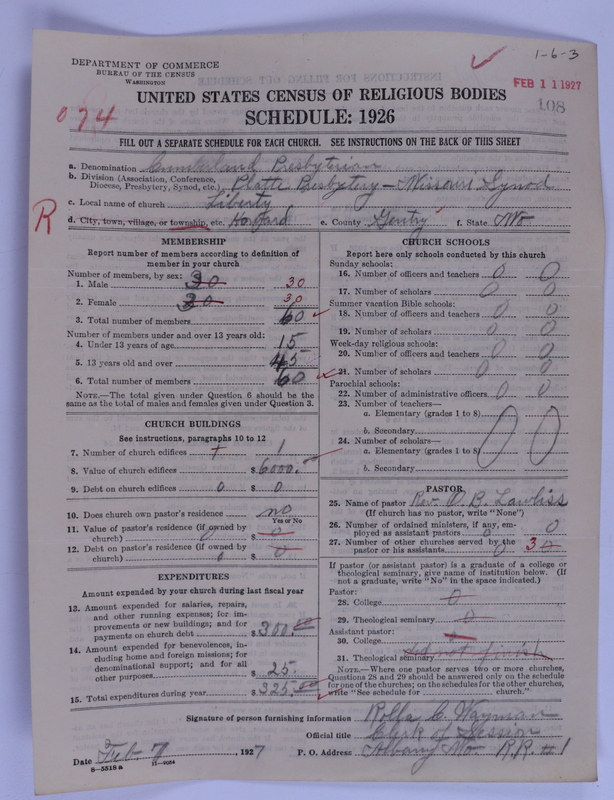 DEPARTMENT OF COMMERCE
BUREAU OF THE CENSUS
WASHINGTON
1-6-3
FEB 11 1927
108
074
UNITED STATES CENSUS OF RELIGIOUS BODIES
SCHEDULE: 1926
FILL OUT A SEPARATE SCHEDULE FOR EACH CHURCH. SEE INSTRUCTIONS ON THE BACK OF THIS SHEET
a. Denomination Cumberland Presbyterian
b. Division (Association, Conference, Diocese, Presbytery, Synod, etc.) Platte Presbytery - Missouri Synod
c. Local name of church Liberty
R
d. City, town, village, or township, etc. Howard e. County Gentry f. State Mo
MEMBERSHIP
Report number of members according to definition of
member in your church
Number of members, by sex:
1. Male 30 30
2. Female 30 30
3. Total number of members 60
Number of members under and over 13 years old:
4. Under 13 years of age 15
5. 13 years old and over 45
6. Total number of members 60
NOTE.—The total given under Question 6 should be
the same as the total of males and females given under Question 3.
CHURCH BUILDINGS
See instructions, paragraphs 10 to 12
7. Number of church edifices 1 1
8. Value of church edifices $ 6000.
9. Debt on church edifices 0 $ 0
10. Does church own pastor's residence no
Yes or No
11. Value of pastor's residence (if owned by
church) 0 $ 0
12. Debt on pastor's residence (if owned by
church) 0 $ 0
EXPENDITURES
Amount expended by your church during last fiscal year
13. Amount expended for salaries, repairs,
and other running expenses; for im-
provements or new buildings; and for
payments on church debt $ 300.00
14. Amount expended for benevolences, in-
cluding home and foreign missions; for
denominational support; and for all
other purposes $ 25
15. Total expenditures during year $ 325.00
CHURCH SCHOOLS
Report here only schools conducted by this church
Sunday schools:
16. Number of officers and teachers 0 0
17. Number of scholars 0 0
Summer vacation Bible schools:
18. Number of officers and teachers 0 0
19. Number of scholars 0 0
Week-day religious schools:
20. Number of officers and teachers 0 0
21. Number of scholars 0 0
Parochial schools:
22. Number of administrative officers 0 0
23. Number of teachers—
a. Elementary (grades 1 to 8)
b. Secondary
24. Number of scholars— 0 0
a. Elementary (grades 1 to 8)
b. Secondary
PASTOR
25. Name of pastor Rev. O. B. Lawliss
(If church has no pastor, write "None")
26. Number of ordained ministers, if any, em-
ployed as assistant pastors 0 0
27. Number of other churches served by the
pastor or his assistants 0 3 0
If pastor (or assistant pastor) is a graduate of a college or
theological seminary, give name of institution below. (If
not a graduate, write "No" in the space indicated.)
Pastor:
28. College 0
29. Theological seminary 0
Assistant pastor:
30. College 0
31. Theological seminary did not finish
NOTE.—Where one pastor serves two or more churches,
Questions 28 and 29 should be answered only on the schedule
for one of the churches; on the schedules for the other churches,
write "See schedule for ______ church."
Signature of person furnishing information Rolla C. Wayman
Official title Clerk of Session
Date Feb. 7, 1927 P. O. Address Albany Mo. R.R. #1
8—5518 a 11—9034